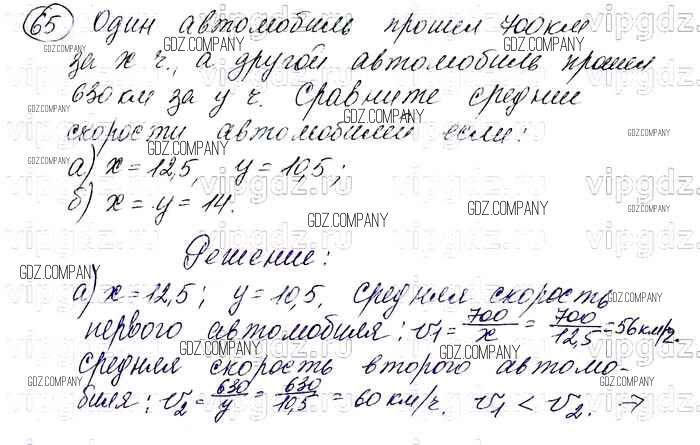 65 Один автомобиль прошел 700 км
за x ч., а другой автомобиль прошел
630 км за y ч. Сравните средние
скорости автомобилей если:
а) x = 12,5, y = 10,5;
б) x = y = 14.
Решение:
а) x = 12,5; y = 10,5. Средняя скорость
первого автомобиля: v₁ = 700/x = 700/12,5 = 56 км/ч.
Средняя скорость второго автомо-
биля: v₂ = 630/y = 630/10,5 = 60 км/ч. v₁ < v₂. →